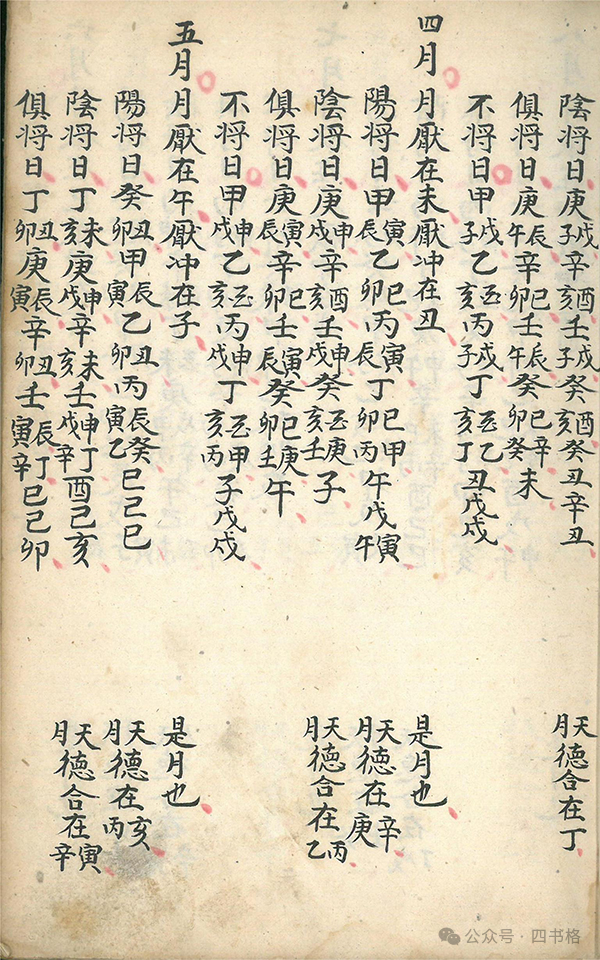 陰将日庚戌子辛酉亥壬戌子癸酉亥癸丑辛丑
天月德合在丁
俱将日庚辰午辛巳卯壬辰午癸巳卯辛癸未
不将日甲戌子乙酉亥丙戌子丁酉亥乙丁丑戊戌
四月 月厭在未厭冲在丑
是月也
陽将日甲寅辰乙巳卯丙寅辰丁巳卯甲丙午戊寅午
天月德在辛庚
陰将日庚申戌辛酉亥壬申戌癸酉亥庚壬子
天月德合在丙乙
俱将日庚寅辰辛巳卯壬寅辰癸巳卯庚壬午
不将日甲申戌乙酉亥丙申戌丁酉亥甲丙子戊戌
五月 月厭在午厭冲在子
是月也
陽将日癸丑卯甲辰寅乙丑卯丙辰寅癸乙巳己巳
天月德在亥丙
陰将日丁未亥庚申戌辛未亥壬申戌丁辛酉己亥
天月德合在寅辛
俱将日丁丑卯庚辰寅辛丑卯壬辰寅丁辛巳己卯
公众号·四书格